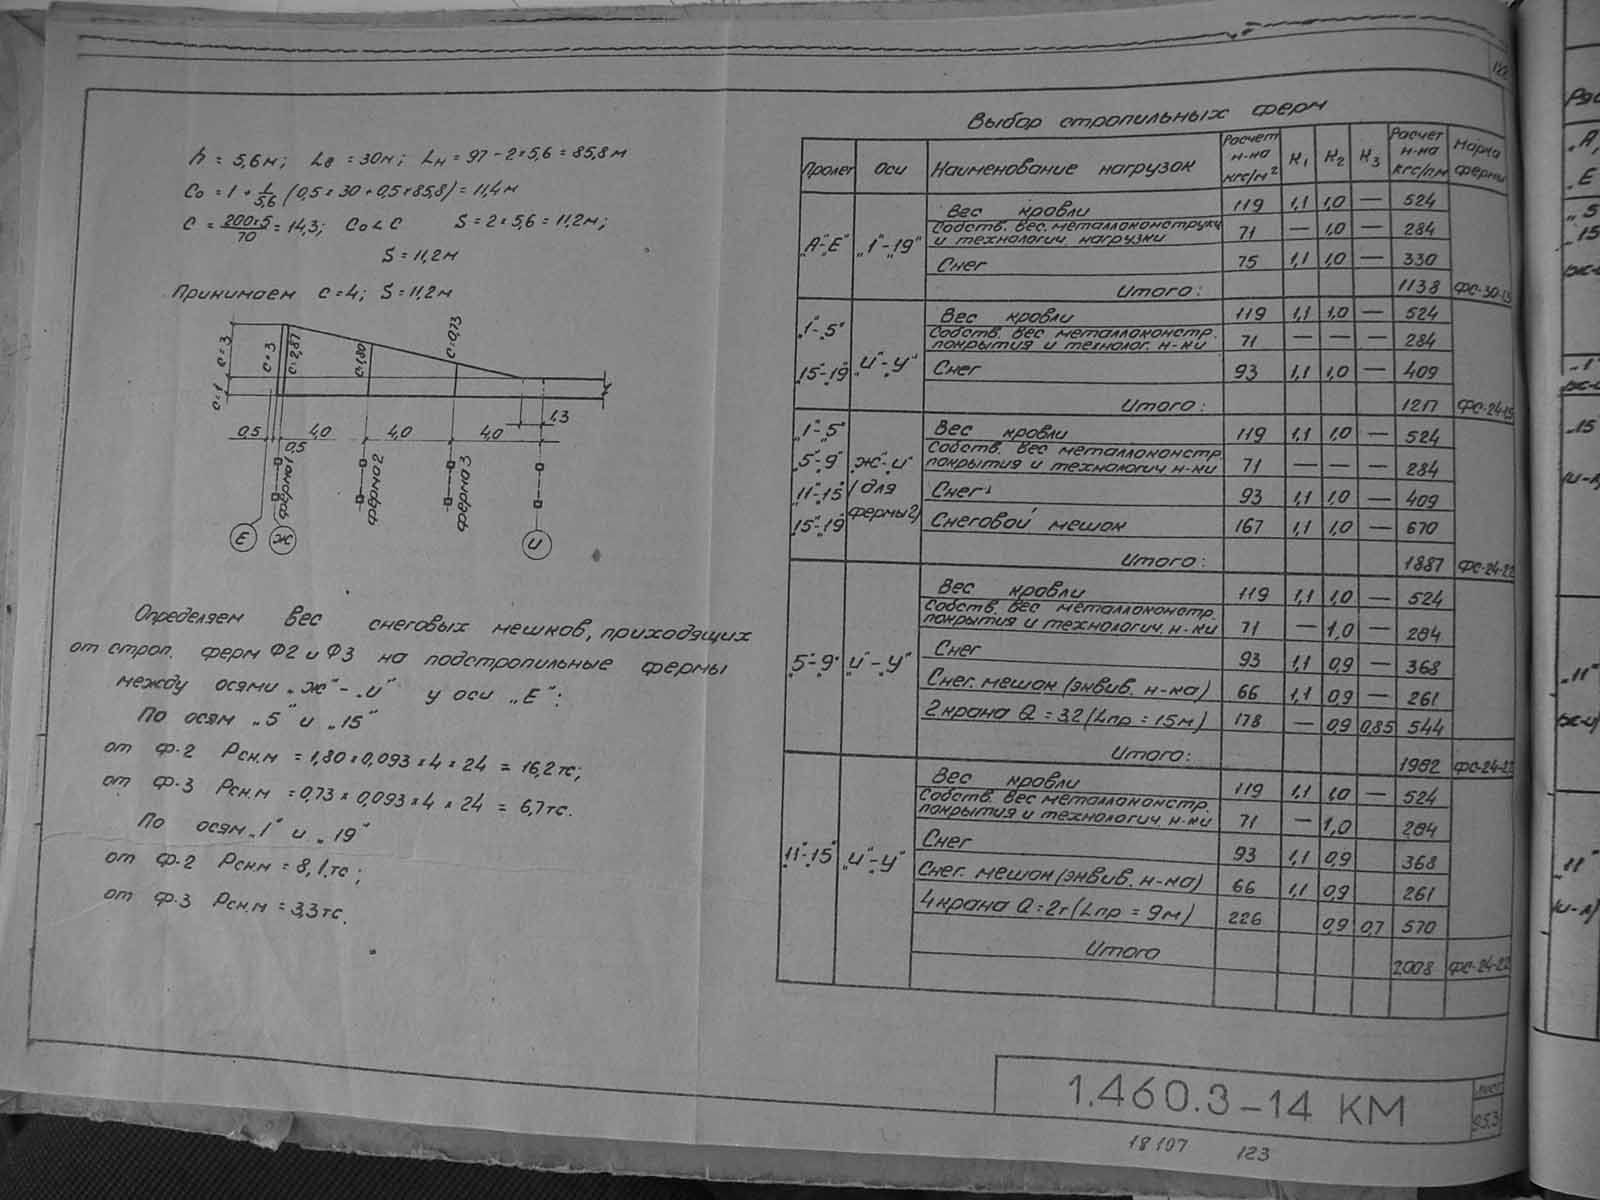 122
h = 5,6м; Lв = 30м; Lн = 97 - 2×5,6 = 85,8м
C₀ = 1 + 1/5,6 (0,5 × 30 + 0,5 × 85,8) = 11,4м
C = 200×5/70 = 14,3; C₀ < C S = 2 × 5,6 = 11,2м;
S = 11,2м
Принимаем c = 4; S = 11,2м
c=3
c=1
c=3
c=2,87
c=1,80
c=0,73
1,3
0,5 4,0 4,0 4,0
0,5
ферма1
ферма2
ферма3
Е Ж И
Определяем вес снеговых мешков, приходящих
от строп. ферм Ф2 и Ф3 на подстропильные фермы
между осями „Ж"-„И" у оси „Е":
По осям „5" и „15"
от Ф-2 Рсн.м = 1,80 × 0,093 × 4 × 24 = 16,2тс;
от Ф-3 Рсн.м = 0,73 × 0,093 × 4 × 24 = 6,7тс.
По осям „1" и „19"
от Ф-2 Рсн.м = 8,1тс;
от Ф-3 Рсн.м = 3,3тс.
Выбор стропильных ферм
Пролет Оси Наименование нагрузок Расчет н-ка кгс/м² К₁ К₂ К₃ Расчет н-ка кгс/пм Марка фермы
„А"-„Е" „1"-„19" Вес кровли 119 1,1 1,0 — 524
Собств. вес. металлоконструкц. и технологич нагрузки 71 — 1,0 — 284
Снег 75 1,1 1,0 — 330
Итого: 1138 ФС-30-13
„1"-„5" „15"-„19" „И"-„У" Вес кровли 119 1,1 1,0 — 524
Собств. вес металлоконстр. покрытия и технолог. н-ки 71 — — — 284
Снег 93 1,1 1,0 — 409
Итого: 1217 ФС-24-15
„1"-„5" „5"-„9" „11"-„15" „15"-„19" „Ж"-„И" (для фермы 2) Вес кровли 119 1,1 1,0 — 524
Собств. вес металлоконстр. покрытия и технологич н-ки 71 — — — 284
Снег 93 1,1 1,0 — 409
Снеговой мешок 167 1,1 1,0 — 670
Итого: 1887 ФС-24-22
„5"-„9" „И"-„У" Вес кровли 119 1,1 1,0 — 524
Собств. вес металлоконстр. покрытия и технологич. н-ки 71 — 1,0 — 284
Снег 93 1,1 0,9 — 368
Снег. мешок (эквив. н-ка) 66 1,1 0,9 — 261
2 крана Q = 3,2 (Lпр = 15м) 178 — 0,9 0,85 544
Итого: 1982 ФС-24-22
„11"-„15" „И"-„У" Вес кровли 119 1,1 1,0 — 524
Собств. вес металлоконстр. покрытия и технологич. н-ки 71 — 1,0 284
Снег 93 1,1 0,9 368
Снег. мешок (эквив. н-ка) 66 1,1 0,9 261
4 крана Q = 2т (Lпр = 9м) 226 0,9 0,7 570
Итого 2008 ФС-24-22
1.460.3-14 КМ
лист
95.3
18107 123
„А,
„Е
„5
„15
„1"
„15
„11"
„11"